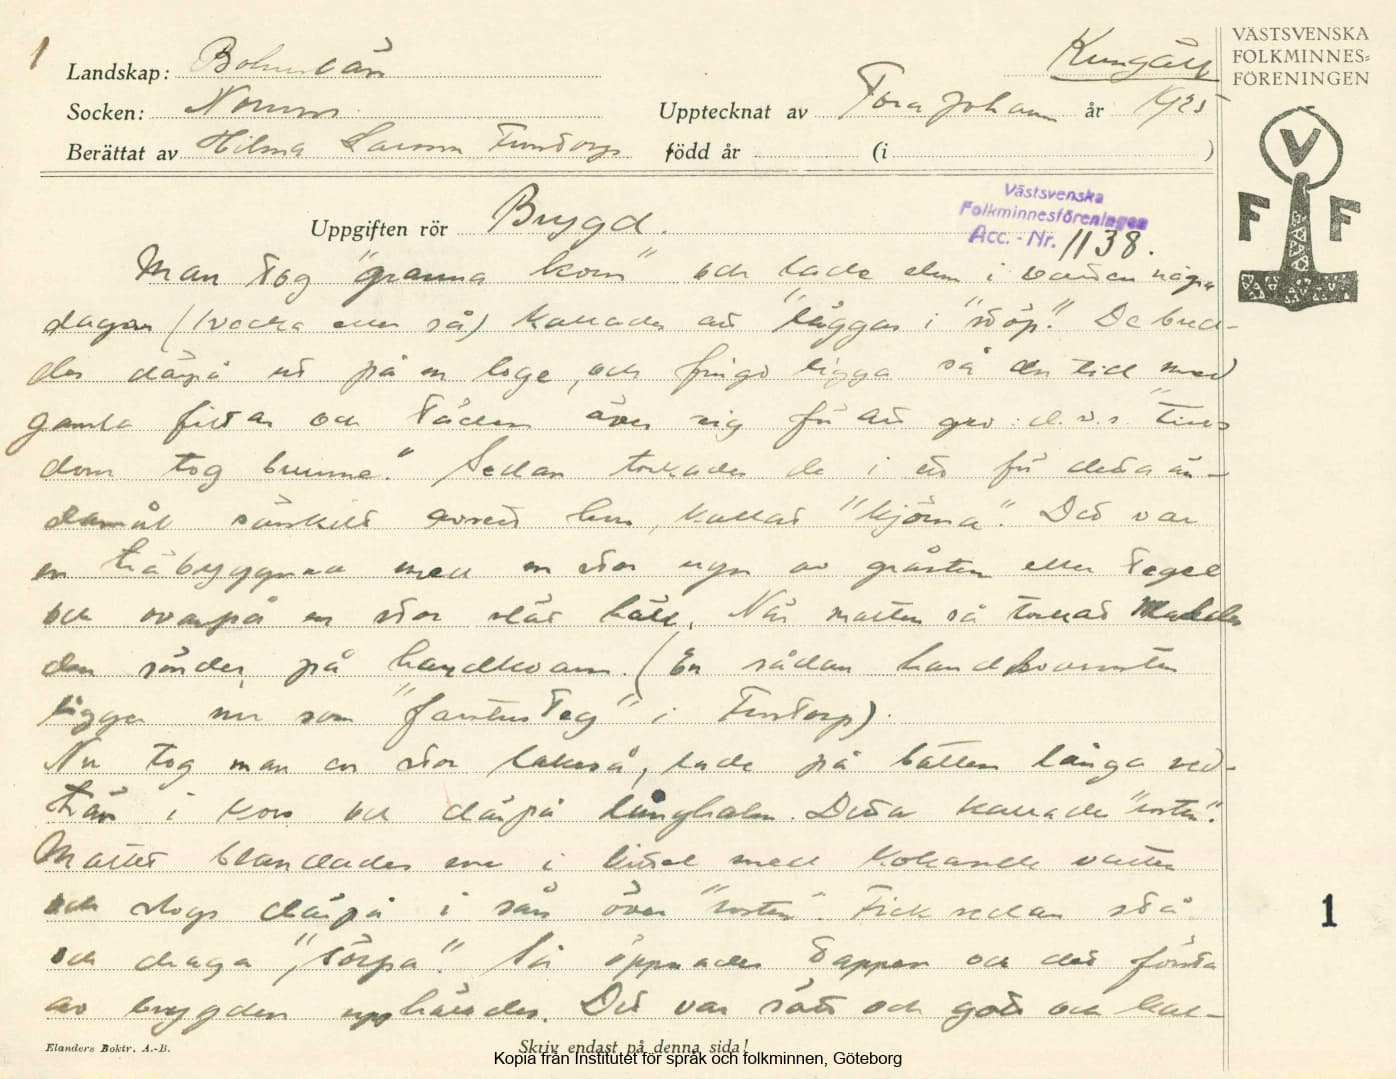 1
VÄSTSVENSKA
FOLKMINNES=
FÖRENINGEN
V
F F
Kungälv
Landskap: Bohuslän
Socken: Norum Upptecknat av Tora Johans år 1925
Berättat av Hilma Larsson Furdorp född år (i )
Västsvenska
Folkminnesföreningen
Acc. - Nr. 1138.
Uppgiften rör Brygd.
Man tog "granna korn" och lade dem i vatten några
dagar (1 vecka eller så) kallades att "läggas i stöp". De bred-
des därpå ut på en loge, och fingo ligga så en tid med
gamla filtar och täcken över sig för att gro: d.v.s. "tills
dom tog brumme". Sedan torkades de i ett för detta än-
damål särskilt avsett hus, kallat "kjörna". Det var
en träbyggnad med en stor ugn av gråsten eller tegel
och ovanpå en stor slät häll. När malten så torkat maldes
den sönder på handkvarn. (En sådan handkvarnsten
ligger nu som "farstusteg" i Furdorp).
Nu tog man en stor lakeså, lade på botten långa ved-
trän i kors och därpå långhalm. Detta kallades "rosten".
Maltet blandades nu i kittel med kokande vatten
och slogs därpå i sån över "rosten". Fick sedan stå
och draga "törpa". Så öppnades tappen och det första
av brygden upphälldes. Det var sött och gott och kal-
1
Elanders Boktr. A.-B.
Skriv endast på denna sida!
Kopia från Institutet för språk och folkminnen, Göteborg